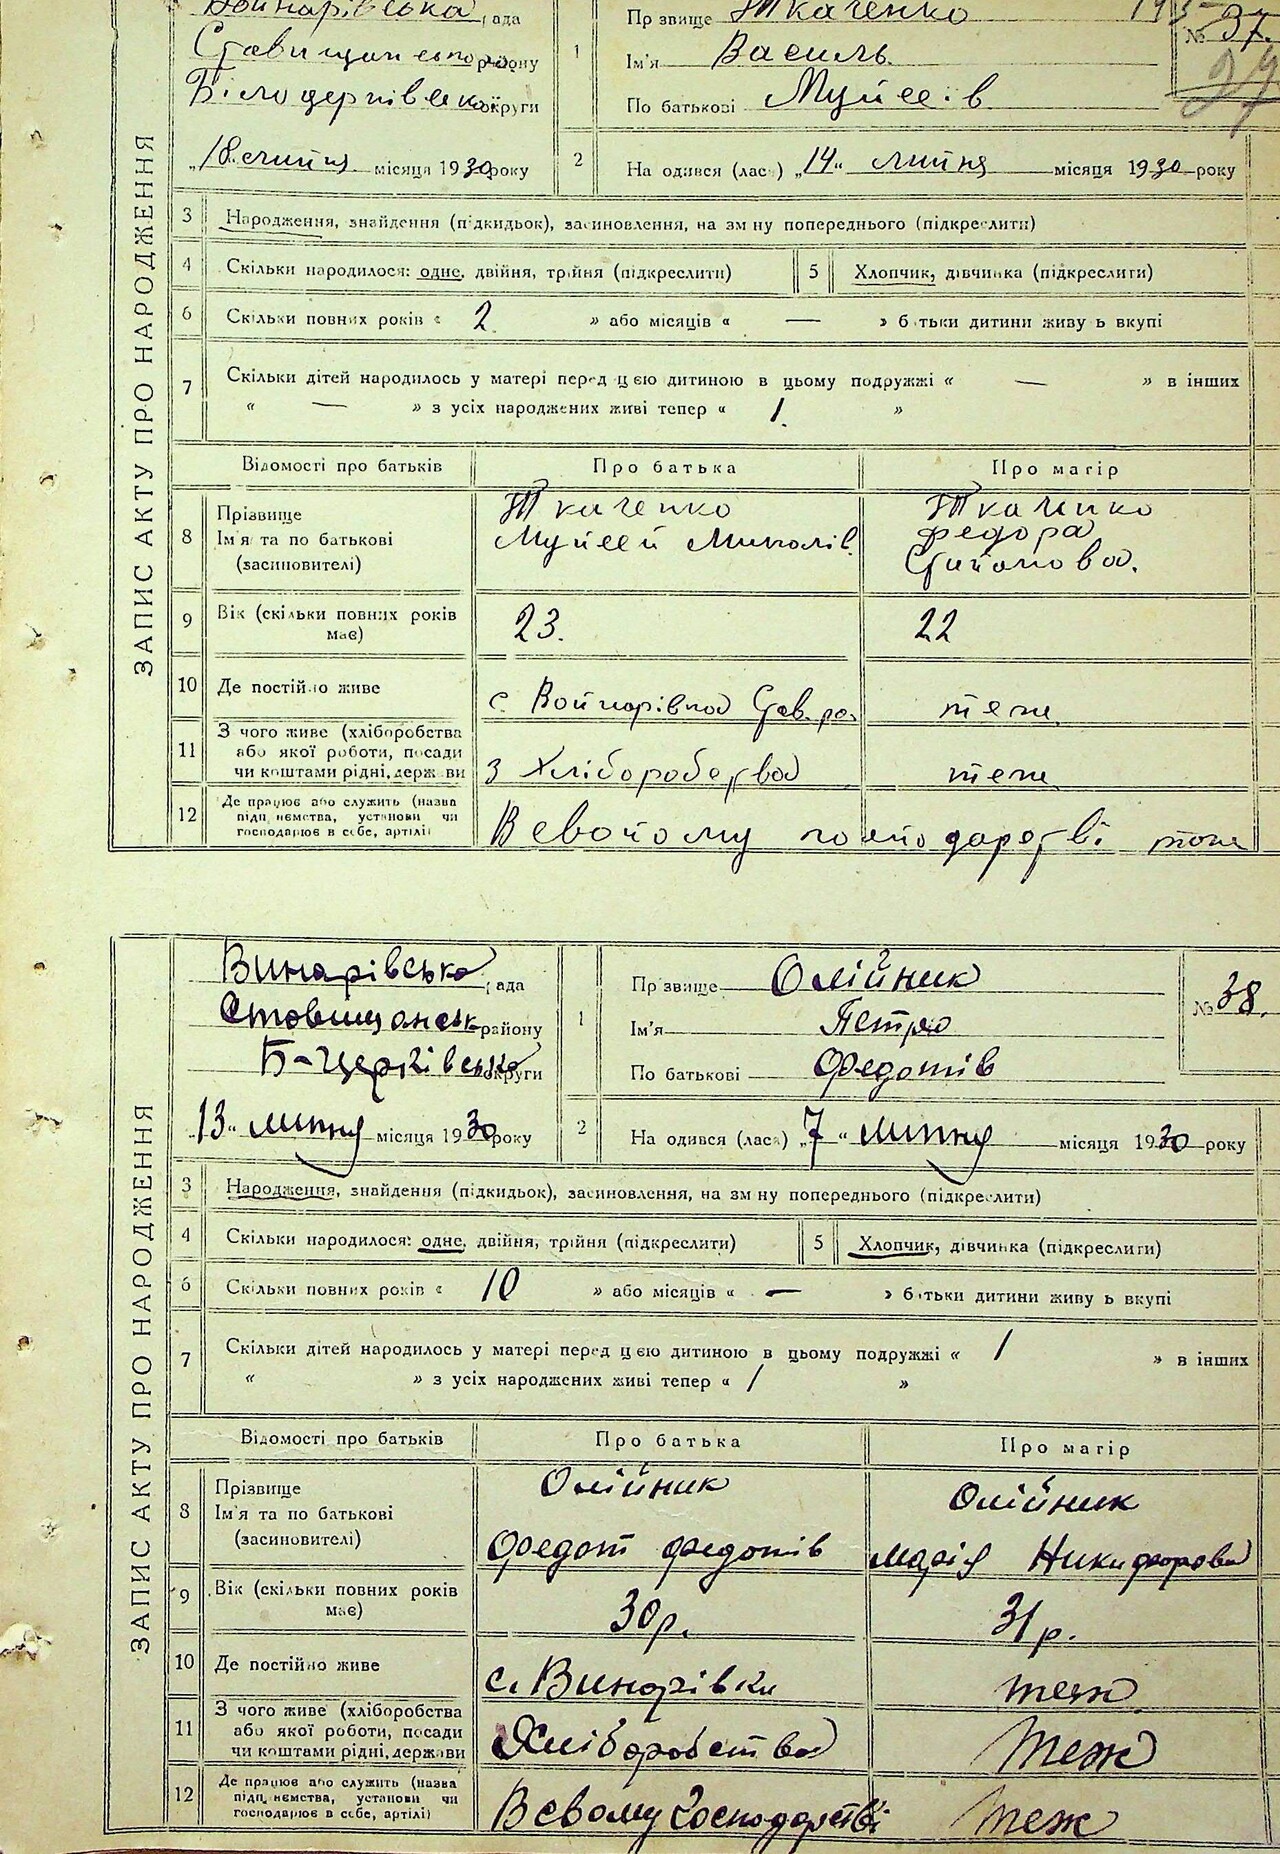 ЗАПИС АКТУ ПРО НАРОДЖЕННЯ
Войнарівська рада
Ставищанського району
Білоцерківської округи
„18„ липня місяця 1930 року
1 Прізвище Ткаченко
Ім'я Василь
По батькові Муйсеїв
№ 37.
2 Народився (лася) „14„ липня місяця 1930 року
3 Народження, знайдення (підкидьок), засиновлення, на зміну попереднього (підкреслити)
4 Скільки народилося: одне, двійня, трійня (підкреслити)
5 Хлопчик, дівчинка (підкреслити)
6 Скільки повних років « 2 » або місяців « — » батьки дитини живуть вкупі
7 Скільки дітей народилось у матері перед цією дитиною в цьому подружжі « — » в інших
« — » з усіх народжених живі тепер « 1. »
Відомості про батьків Про батька Про матір
8 Прізвище
Ім'я та по батькові
(засиновителі)
Ткаченко
Муйсей Миколів.
Ткаченко
Федора
Степанова.
9 Вік (скільки повних років має) 23. 22
10 Де постійно живе с Войнарівка Став. ра. теж
11 З чого живе (хліборобства
або якої роботи, посади
чи коштами рідні, держави
з Хліборобства теж
12 Де працює або служить (назва
підприємства, установи чи
господарює в себе, артілі)
В своєму господарстві теж
ЗАПИС АКТУ ПРО НАРОДЖЕННЯ
Винарівська рада
Ставищанськ району
Б-Церківська округи
„13„ липня місяця 1930 року
1 Прізвище Олійник
Ім'я Петро
По батькові Федотів
№ 38.
2 Народився (лася) „7„ липня місяця 1930 року
3 Народження, знайдення (підкидьок), засиновлення, на зміну попереднього (підкреслити)
4 Скільки народилося: одне, двійня, трійня (підкреслити)
5 Хлопчик, дівчинка (підкреслити)
6 Скільки повних років « 10 » або місяців « — » батьки дитини живуть вкупі
7 Скільки дітей народилось у матері перед цією дитиною в цьому подружжі « 1 » в інших
« » з усіх народжених живі тепер « 1 »
Відомості про батьків Про батька Про матір
8 Прізвище
Ім'я та по батькові
(засиновителі)
Олійник
Федот Федотів
Олійник
Марія Никифорова
9 Вік (скільки повних років має) 30 р. 31 р.
10 Де постійно живе с. Винарівки теж
11 З чого живе (хліборобства
або якої роботи, посади
чи коштами рідні, держави
Хліборобства теж
12 Де працює або служить (назва
підприємства, установи чи
господарює в себе, артілі)
В свому господарстві теж